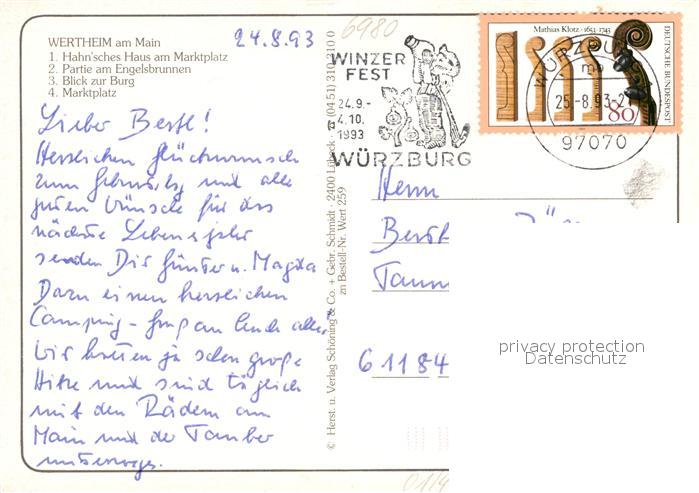 WERTHEIM am Main
1. Hahn'sches Haus am Marktplatz
2. Partie am Engelsbrunnen
3. Blick zur Burg
4. Marktplatz
24.8.93
6980
Lieber Bertl!
Herzlichen Glückwunsch
zum Geburtstag und alle
guten Wünsche für das
nächste Lebensjahr
senden Dir Günter u. Magda
Dazu einen herzlichen
Camping-Gruß an Euch alle.
Wir hatten ja schon große
Hitze und sind täglich
mit den Rädern am
Main und der Tauber
unterwegs.
© Herst. u. Verlag Schöning & Co. + Gebr. Schmidt · 2400 Lübeck · ☎ (04 51) 310 310 0
zu Bestell-Nr. Wert 259
WINZER
FEST
24.9.-
4.10.
1993
WÜRZBURG
Mathias Klotz · 1653-1743
DEUTSCHE BUNDESPOST
80
WÜRZBURG
mb
25.-8.93-2
97070
Herrn
61184
privacy protection
Datenschutz